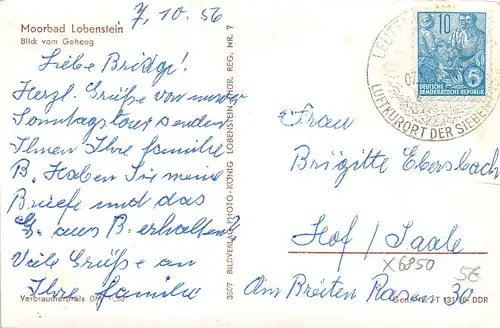 Moorbad Lobenstein
Blick vom Geheeg
7.10.56
Liebe Bridge!
Herzl. Grüße von unser
Sonntagstour senden
Ihnen Ihre familie
B. Haben Sie meine
Briefe und das
aus B. erhalten?
Viele Grüße an
Ihre familie
Verbraucherpreis DM
3507 BILDVERLAG PHOTO-KÖNIG LOBENSTEIN THÜR. REG. NR. 7
10
DEUTSCHE
DEMOKRATISCHE REPUBLIK
LUFTKURORT DER SIEBEN
Frau
Brigitte Ebersbach
Hof / Saale
X6850
56
Am Breiten Rasen 30
DDR